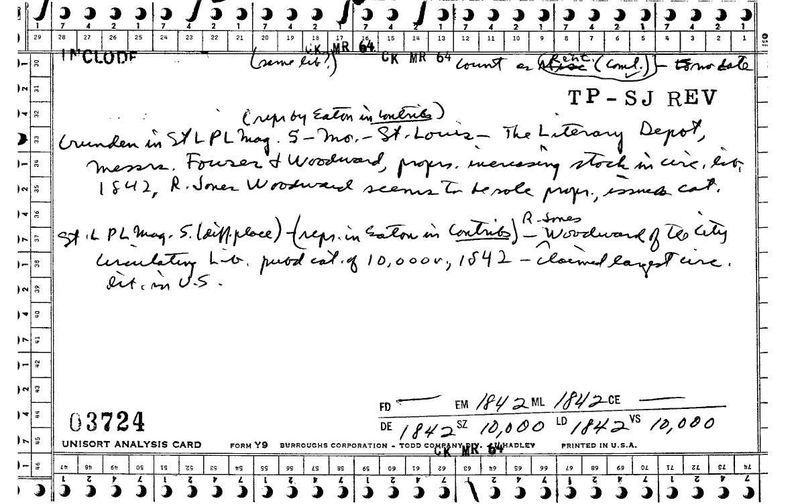 29 28 27 26 25 24 23 22 21 20 19 18 17 16 15 14 13 12 11 10 9 8 7 6 5 4 3 2 1
INCLUDE (same lib?) CK MR 64 CK MR 64 count as Rent. (Coml.) - no date
TP-SJ REV
(repr by Eaton in Contribs)
Crunden in St L PL Mag. 5 - Mo. - St. Louis - The Literary Depot,
Messrs. Fouser & Woodward, proprs. increasing stock in circ. lib.
1842, R. Jones Woodward seems to be sole propr., issues cat.
St. L PL Mag. 5. (diff place) - (repr. in Eaton in Contribs) - R. Jones Woodward of the City
Circulating Lib. pubd cat. of 10,000 v, 1842 - claimed largest circ.
lib. in U.S.
FD — EM 1842 ML 1842 CE —
DE 1842 SZ 10,000 LD 1842 VS 10,000
03724
UNISORT ANALYSIS CARD FORM Y9 BURROUGHS CORPORATION - TODD COMPANY DIV. PRINTED IN U.S.A.
CK MR 64